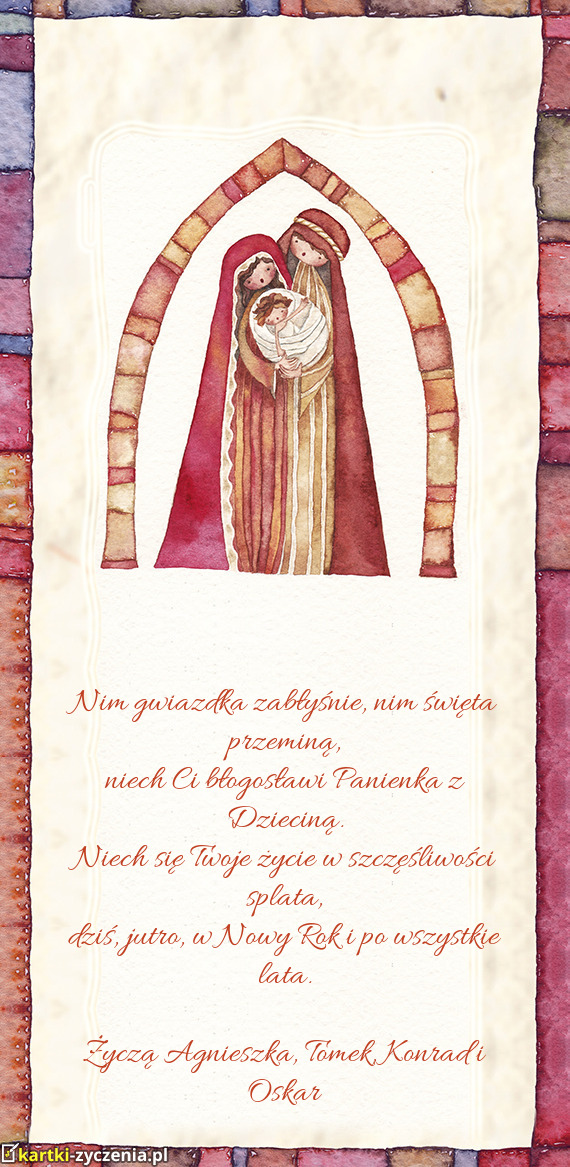 Nim gwiazdka zabłyśnie, nim święta
przeminą,
niech Ci błogosławi Panienka z
Dzieciną.
Niech się Twoje życie w szczęśliwości
splata,
dziś, jutro, w Nowy Rok i po wszystkie
lata.
Życzą Agnieszka, Tomek, Konrad i
Oskar
kartki-zyczenia.pl